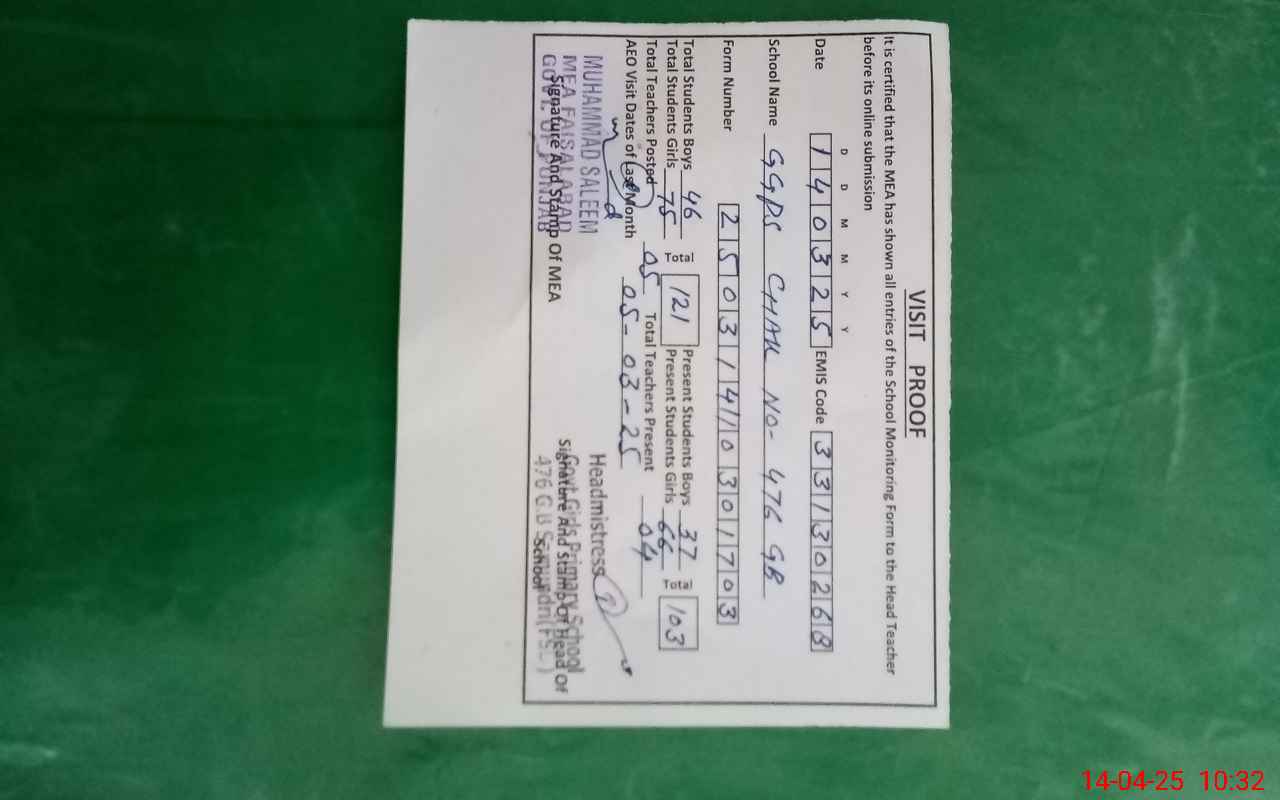 VISIT PROOF
It is certified that the MEA has shown all entries of the School Monitoring Form to the Head Teacher
before its online submission
D D M M Y Y
Date 140325 EMIS Code 33130268
School Name GGPS CHAK NO- 476 GB
Form Number 25031410301703
Total Students Boys 46 Present Students Boys 37
Total 121 Total 103
Total Students Girls 75 Present Students Girls 66
Total Teachers Posted 05 Total Teachers Present 04
AEO Visit Dates of Last Month 05-03-25
MUHAMMAD SALEEM
MEA FAISALABAD
GOVT. OF PUNJAB
Signature And Stamp Of MEA
Headmistress
Govt Girls Primary School
476 G.B Samundri (FSD)
Signature And Stamp Of Head Of
School
14-04-25 10:32